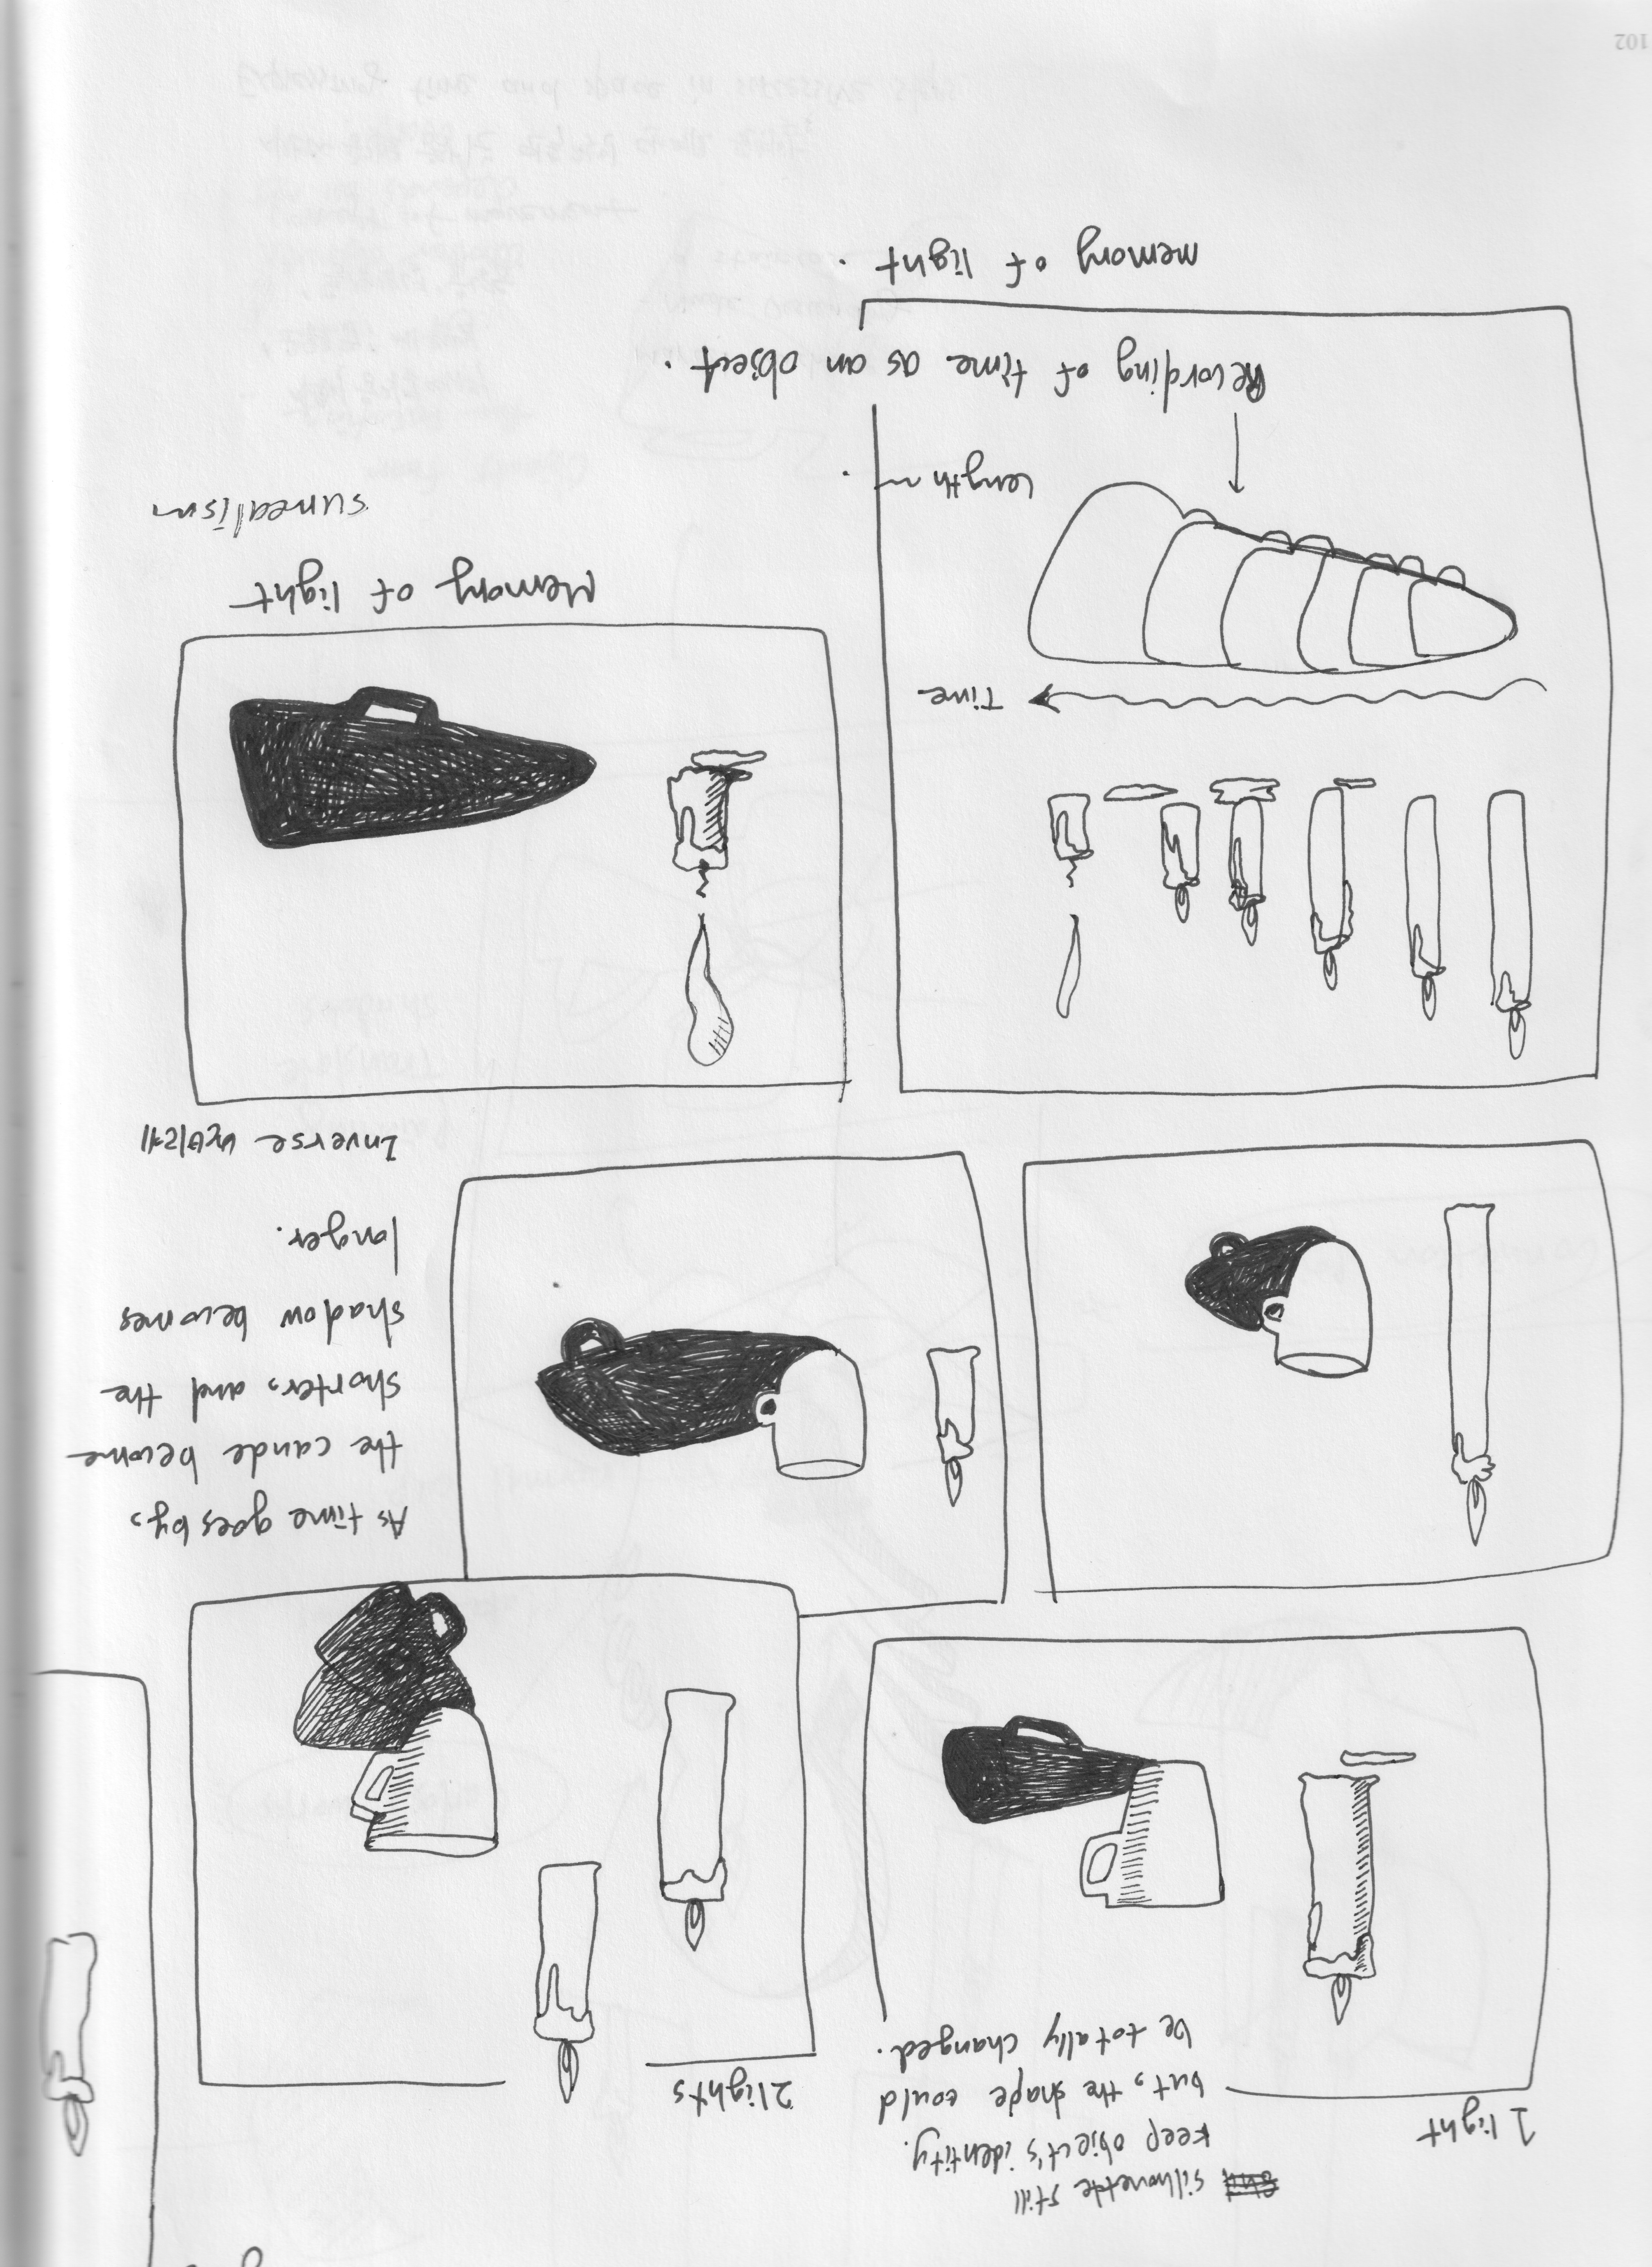 1 light
silhouette still
keep object's identity.
but, the shape could
be totally changed.
2 lights
As time goes by,
the cande become
shorter, and the
shadow becomes
longer.
Inverse 반비례
Time
Length
Recording of time as an object.
memory of light.
Memory of light
surrealism